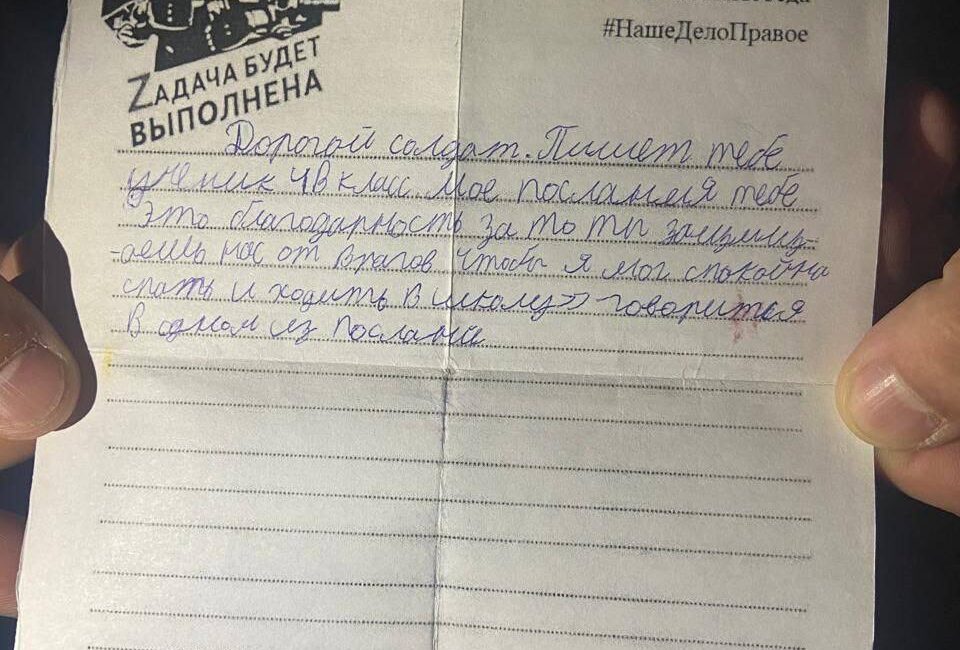 #НашеДелоПравое
ZАДАЧА БУДЕТ
ВЫПОЛНЕНА
Дорогой солдат. Пишет тебе
ученик 4В класс. Мое послания тебе
Это благодарность за то ты защищ-
-аешь нас от врагов чтобы я мог спокойно
спать и ходить в школу» - говорится
В одном из послани